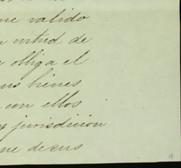 ne valido
n mitad de
obliga el
sus bienes
con ellos
jurisdicion
ne de sus